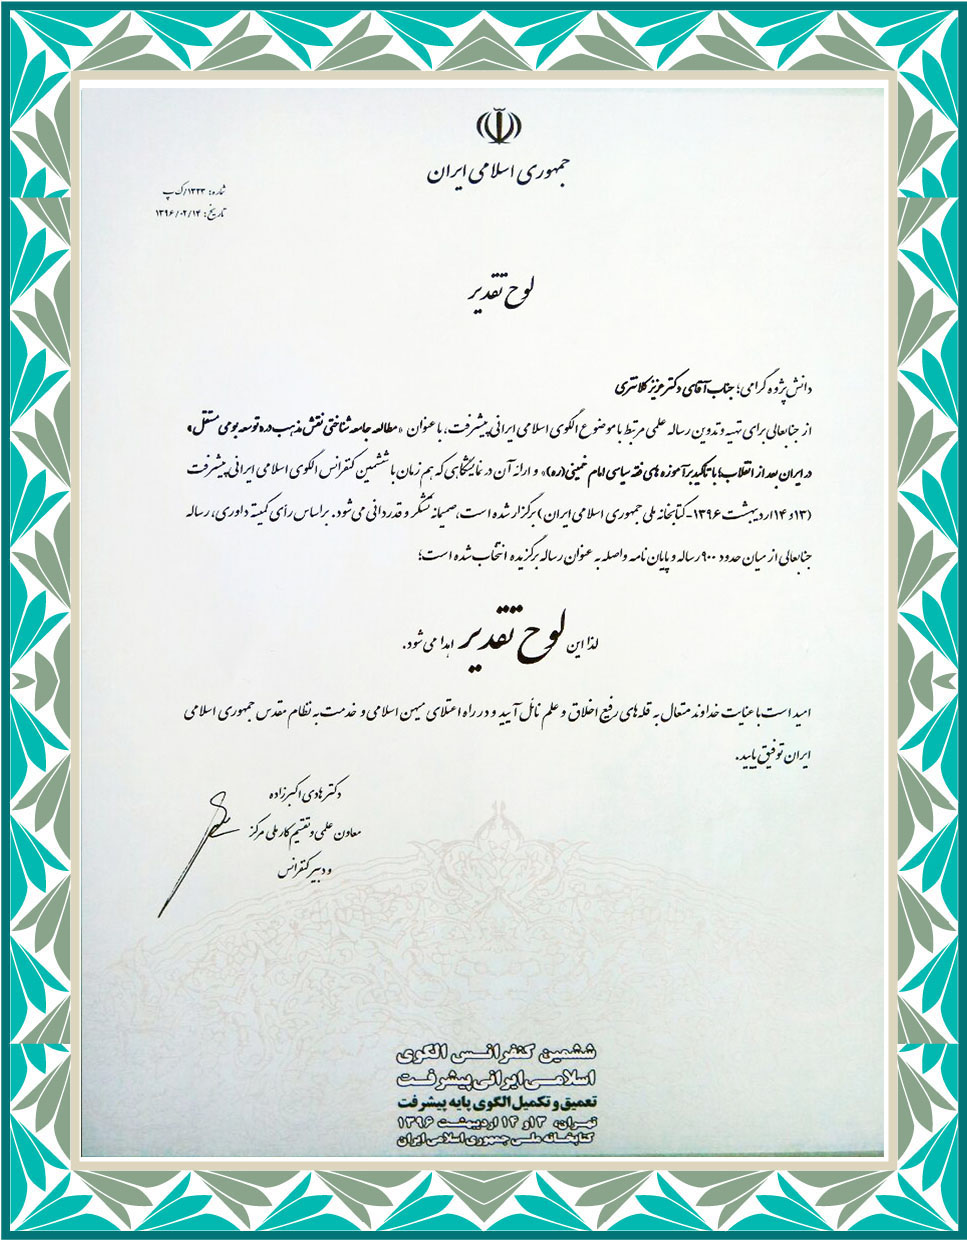 جمهوری اسلامی ایران
شماره: ۱۳۳۳/ک پ
تاریخ: ۱۳۹۶/۰۲/۱۴
لوح تقدیر
دانش پژوه گرامی؛ جناب آقای دکتر عزیز کلانتری
از جنابعالی برای تهیه و تدوین رساله علمی مرتبط با موضوع الگوی اسلامی ایرانی پیشرفت، با عنوان «مطالعه جامعه شناختی نقش مذهب در توسعه بومی مستقل
در ایران بعد از انقلاب؛ با تاکید بر آموزه های فقه سیاسی امام خمینی(ره)» و ارائه آن در نمایشگاهی که هم زمان با ششمین کنفرانس الگوی اسلامی ایرانی پیشرفت
(۱۳ و ۱۴ اردیبهشت ۱۳۹۶-کتابخانه ملی جمهوری اسلامی ایران) برگزار شده است، صمیمانه تشکر و قدردانی می شود. براساس رأی کمیته داوری، رساله
جنابعالی از میان حدود ۹۰۰ رساله و پایان نامه واصله به عنوان رساله برگزیده انتخاب شده است؛
لذا این لوح تقدیر اهدا می شود.
امید است با عنایت خداوند متعال به قله های رفیع اخلاق و علم نائل آیید و در راه اعتلای میهن اسلامی و خدمت به نظام مقدس جمهوری اسلامی
ایران توفیق یابید.
دکتر هادی اکبرزاده
معاون علمی و تقسیم کار ملی مرکز
و دبیر کنفرانس
ششمین کنفرانس الگوی
اسلامی ایرانی پیشرفت
تعمیق و تکمیل الگوی پایه پیشرفت
تهران، ۱۳ و ۱۴ اردیبهشت ۱۳۹۶
کتابخانه ملی جمهوری اسلامی ایران